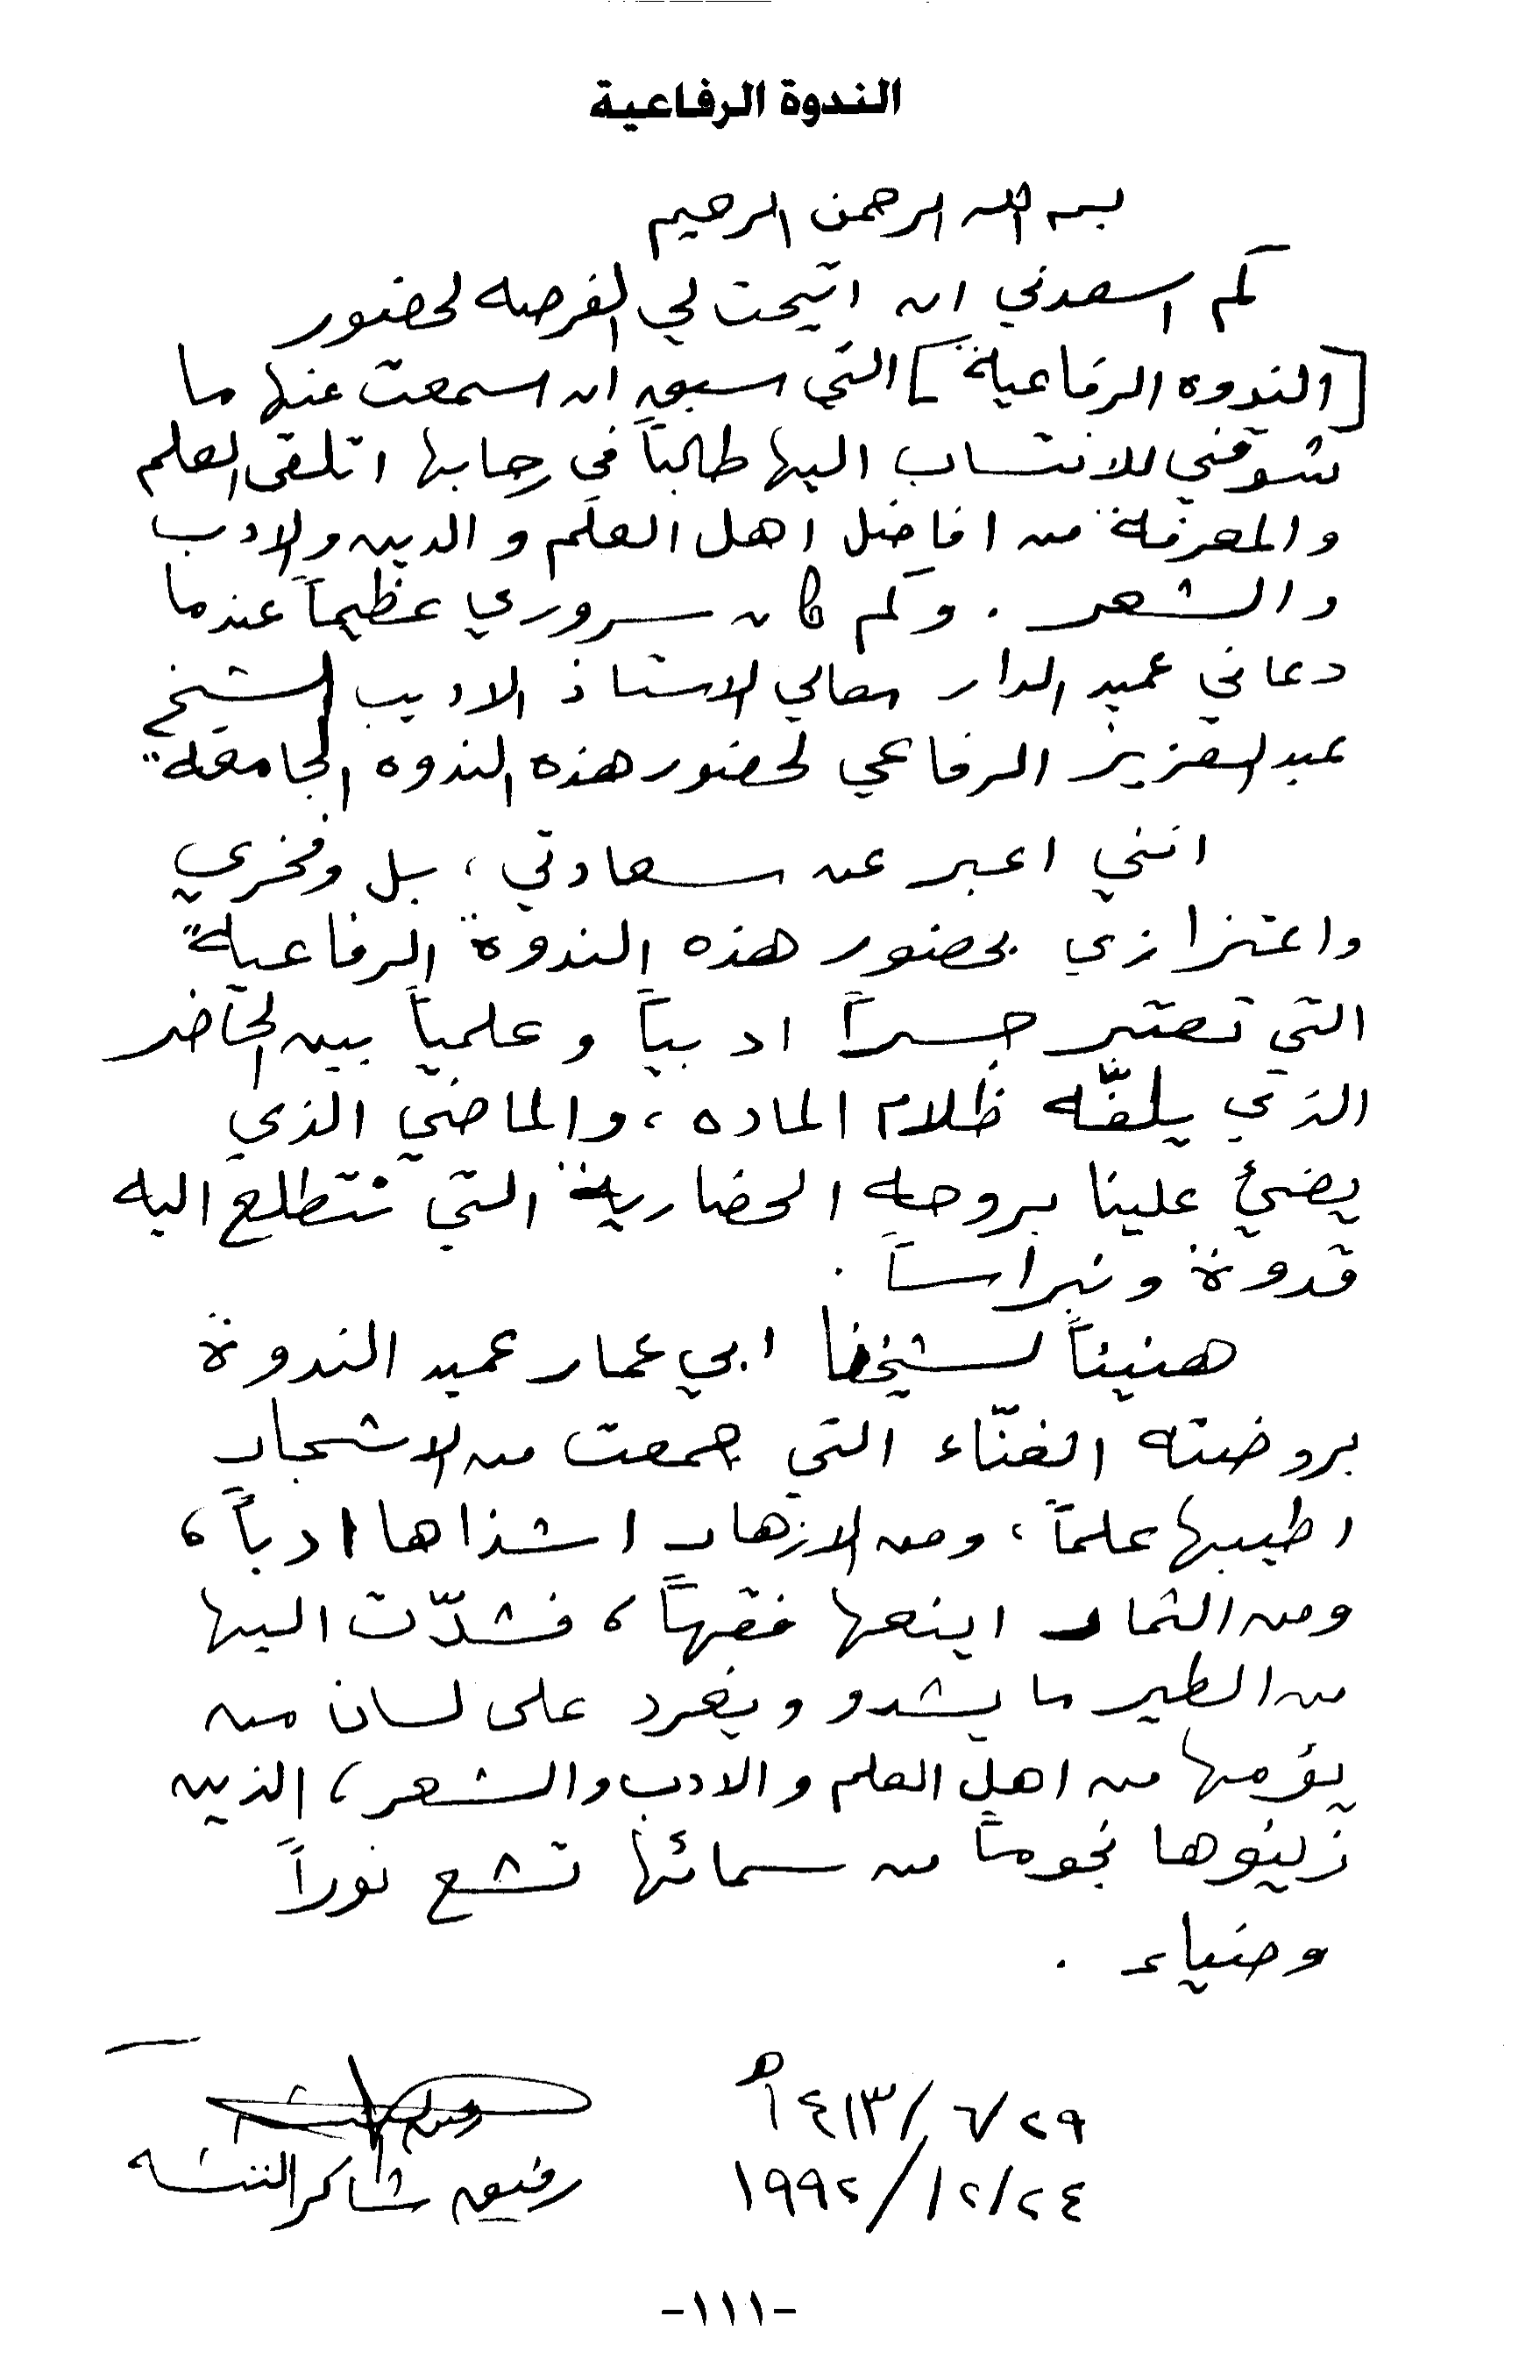 الندوة الرفاعية
بسم الله الرحمن الرحيم
كم اسعدني ان اتيحت لي الفرصه لحضور
[الندوه الرفاعية] التي سبق ان سمعت عنها ما
شوقني للانتساب اليها طالباً في رحابها اتلقى العلم
والمعرفة من افاضل اهل العلم والدين والادب
والشعر . وكم كان سروري عظيماً عندما
دعاني عميد الدار معالي الاستاذ الاديب الشيخ
عبدالعزيز الرفاعي لحضور هذه الندوه الجامعة
انني اعبر عن سعادتي ، بل وفخري
واعتزازي بحضور هذه الندوة الرفاعية
التي تعتبر جسراً ادبياً وعلمياً بين الحاضر
الذي يلفّه ظلام الماده ، والماضي الذي
يضئ علينا بروحه الحضارية التي نتطلع اليه
قدوة ونبراساً .
هنيئاً لشيخنا ابي عمار عميد الندوة
بروضته الغنّاء التي جمعت من الاشجار
اطيبها علماً ، ومن الازهار اشذاها ادباً ،
ومن الثمار اينعها فقهاً ، فشدّت اليها
من الطير ما يشدو ويغرد على لسان من
يؤمها من اهل العلم والادب والشعر ، الذين
زينوها نجوماً من سمائها تشع نوراً
وضياء .
٢٩/٦/١٤١٣هـ
٢٤/١٢/١٩٩٢
رفيق شاكر النتشه
-١١١-